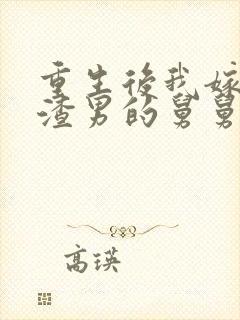 重生後我嫁
渣男的舅舅
高瑛